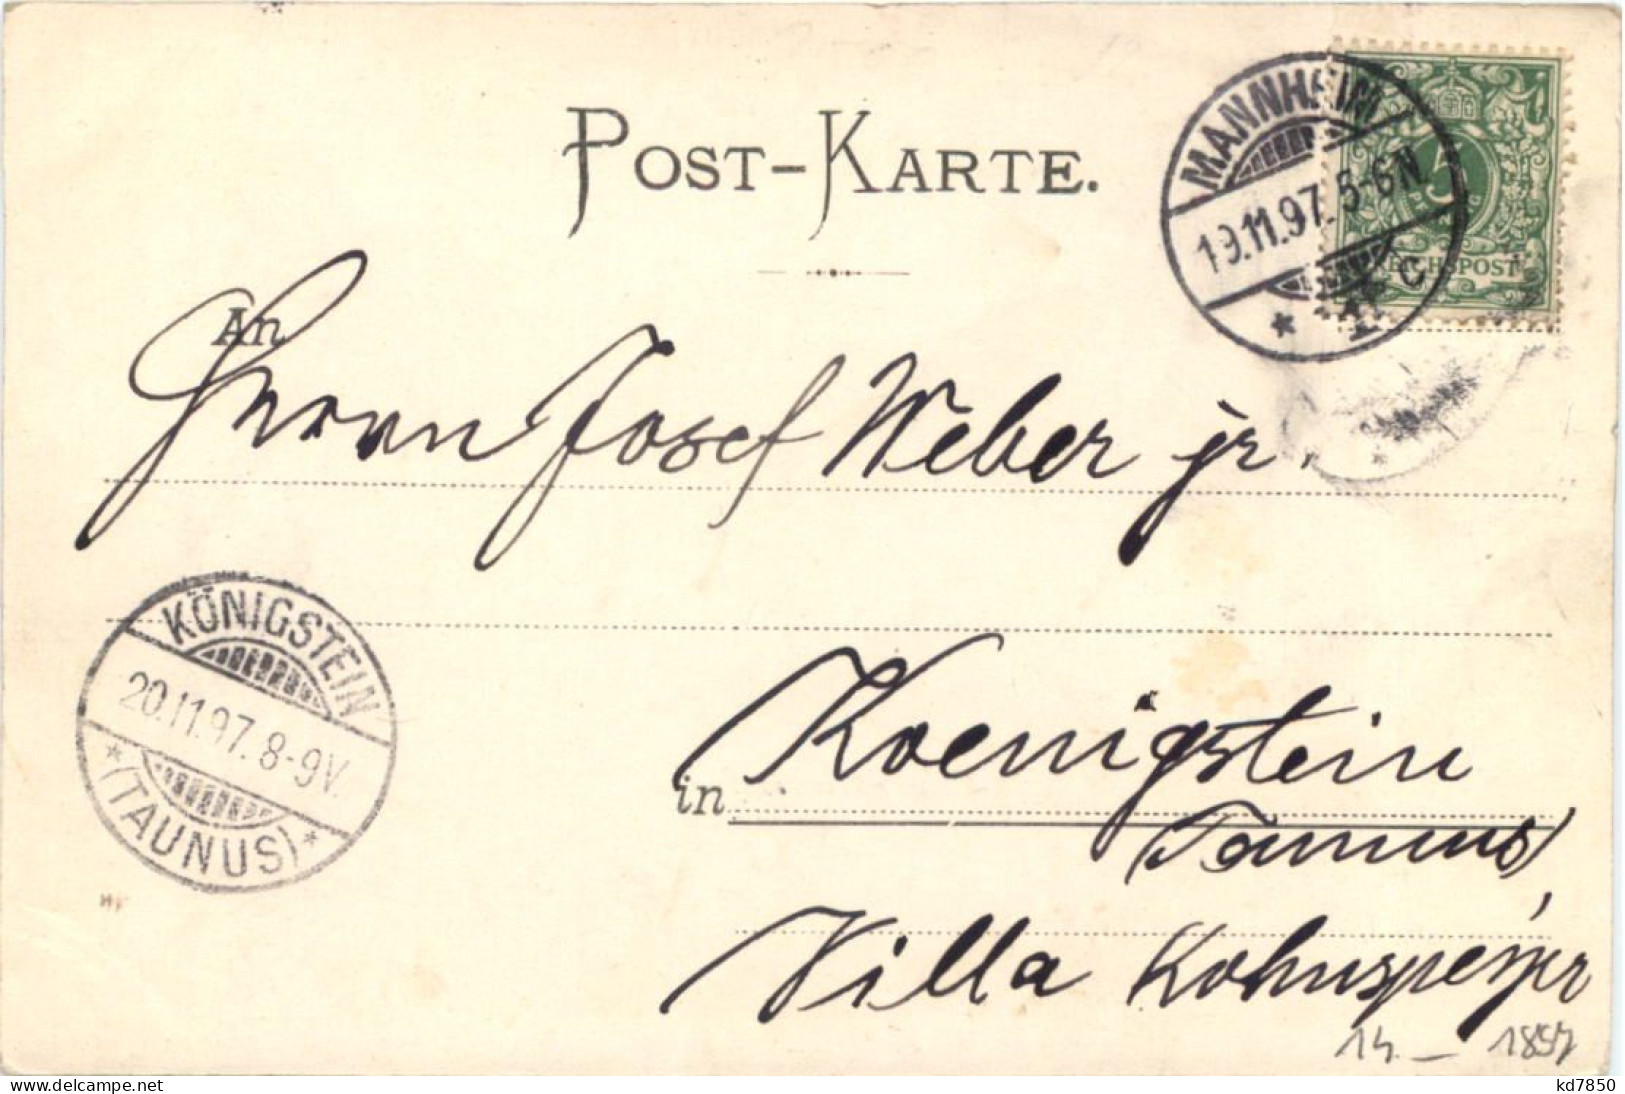 POST-KARTE.
MANNHEIM
19.11.97. 5-6N
* 1 c
5
REICHSPOST
An
Herrn Josef Weber jr.
KÖNIGSTEIN
20.11.97. 8-9V.
*(TAUNUS)*
in Koenigstein
(Taunus)
Villa Kohnspeyer
14.— 1897
www.delcampe.net
kd7850